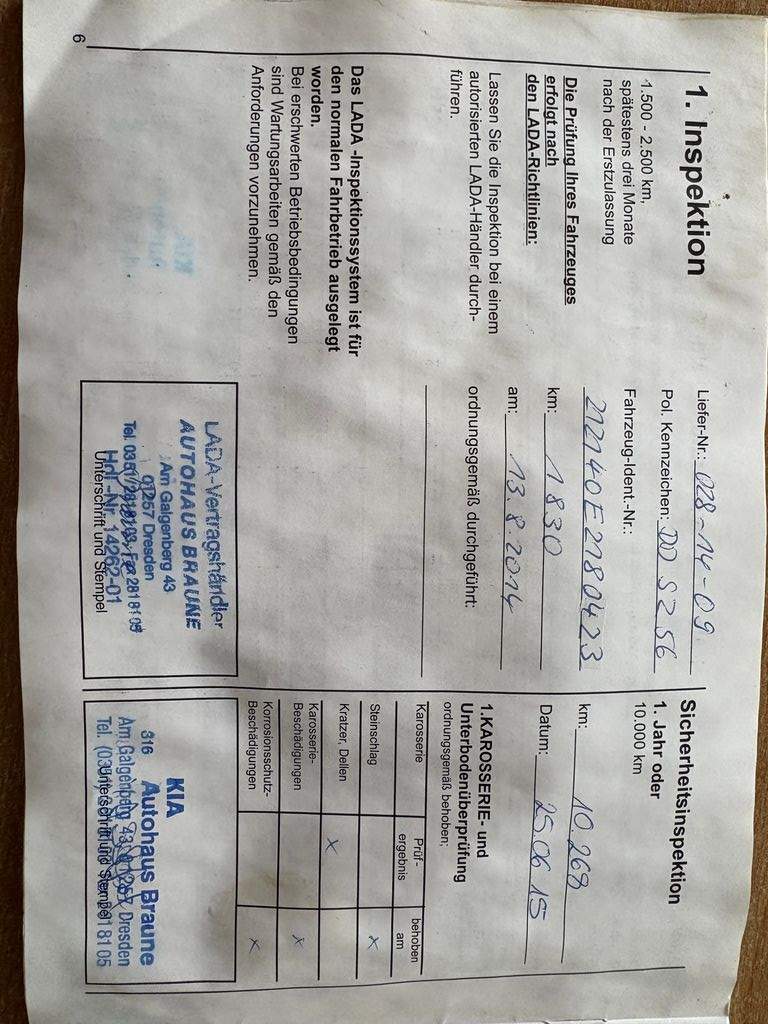 1. Inspektion
1.500 - 2.500 km,
spätestens drei Monate
nach der Erstzulassung
Die Prüfung Ihres Fahrzeuges
erfolgt nach
den LADA-Richtlinien:
Lassen Sie die Inspektion bei einem
autorisierten LADA-Händler durch-
führen.
Das LADA -Inspektionssystem ist für
den normalen Fahrbetrieb ausgelegt
worden.
Bei erschwerten Betriebsbedingungen
sind Wartungsarbeiten gemäß den
Anforderungen vorzunehmen.
6
Liefer-Nr.: 028-14-09
Pol. Kennzeichen: DD SZ 56
Fahrzeug-Ident.-Nr.:
212140E2180423
km: 1830
am: 13.8.2014
ordnungsgemäß durchgeführt:
LADA-Vertragshändler
AUTOHAUS BRAUNE
Am Galgenberg 43
01257 Dresden
Tel. 0351/ Fax 2818105
Hdl.-Nr. 14262-01
Unterschrift und Stempel
Sicherheitsinspektion
1. Jahr oder
10.000 km
km: 10.268
Datum: 25.06.15
1.KAROSSERIE- und
Unterbodenüberprüfung
ordnungsgemäß behoben;
Karosserie Prüf-ergebnis behoben am
Steinschlag x
Kratzer, Dellen x
Karosserie-
Beschädigungen x
Korrosionsschutz-
Beschädigungen x
KIA
316 Autohaus Braune
Am Galgenberg 43, 01257 Dresden
Tel. (0351) 2818105
Unterschrift und Stempel